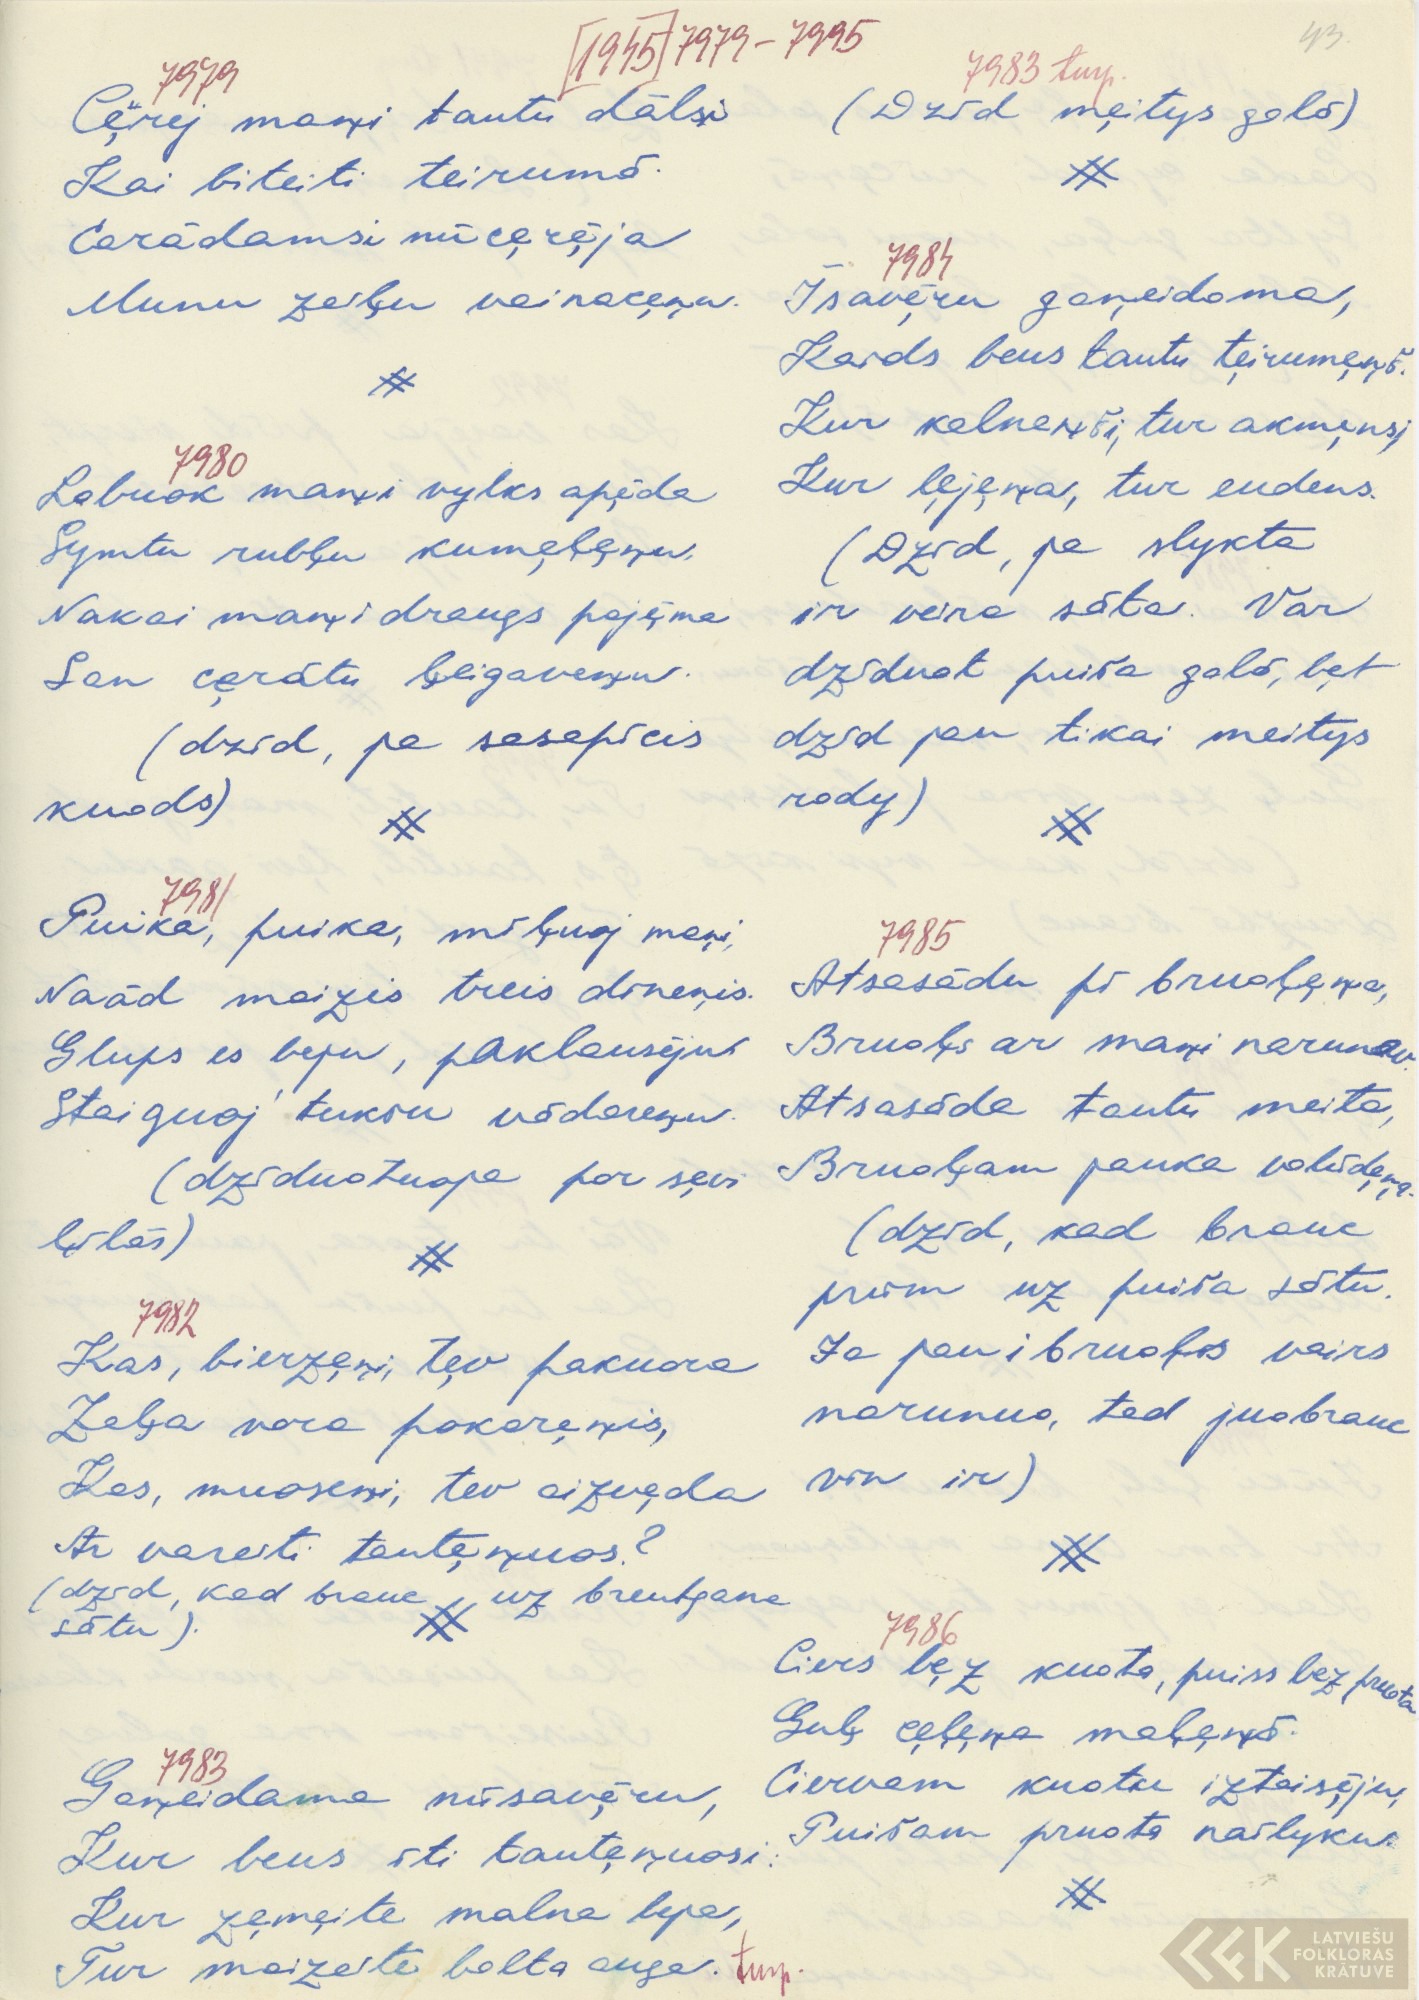 [1945] 7979 – 7995
43.
7979
Cęrej mani tautu dālsi
Kai biteiti teirumā.
Carādamsi nūcęrēja
Munu zeiļu vainaceņu.
7980
Labuok maņi vylks apęda
Symtu rubļu kumęļęņu.
Nakai maņi draugs pajęme
San cęrātu ļeigaveņu.
(dzīd, ja sasapīcis
kuods)
7981
Puika, puika, mīļuoj maņi,
Naād maizis treis dīneņis.
Glups es beju, paklausēju
Staiguoj tuksu vādareņu.
(dzīduotuoja par sęvi
ļīlās)
7982
Kas, bierzęņi, tęv pakuora
Zaļa vora pakaręņis,
Kas, muoseņi, tev aizvęda
Ar vareiti tautęņuos?
(dzīd, kad brauc uz breutgana
sātu).
7983
Gaņeidama nūsavęru,
Kur beus īti tautęņuosi:
Kur zęmęite malna beja,
Tur maizeite balta auga. turp.
7983 turp.
(Dzīd męitys galā)
7984
Īsavęru gaņeidama,
Kaids beus tautu tęirumęņš.
Kur kalneņši, tur akmęnsi,
Kur ļęjęņa, tur eudens.
(Dzīd, ja slykta
ir veira sāta. Var
dzīduot puiša galā, bęt
dzīd jau tikai meitys
rody)
7985
Atsasādu pī bruoļęņa,
Bruoļs ar maņi narunav.
Atsasāda tautu meita,
Bruoļam jauka volūdęņa.
(dzīd, kad brauc
prīm uz puiša sātu.
Ja jau i bruoļos vairs
narunuo, tad juobrauc
vīn ir)
7986
Ciers bęz kuota, puiss bez pruota
Guļ cęļęņa maļęņā.
Ciervam kuotu iztaisęju,
Puišam pruota naīlyku.
LATVIEŠU
FOLKLORAS
KRĀTUVE